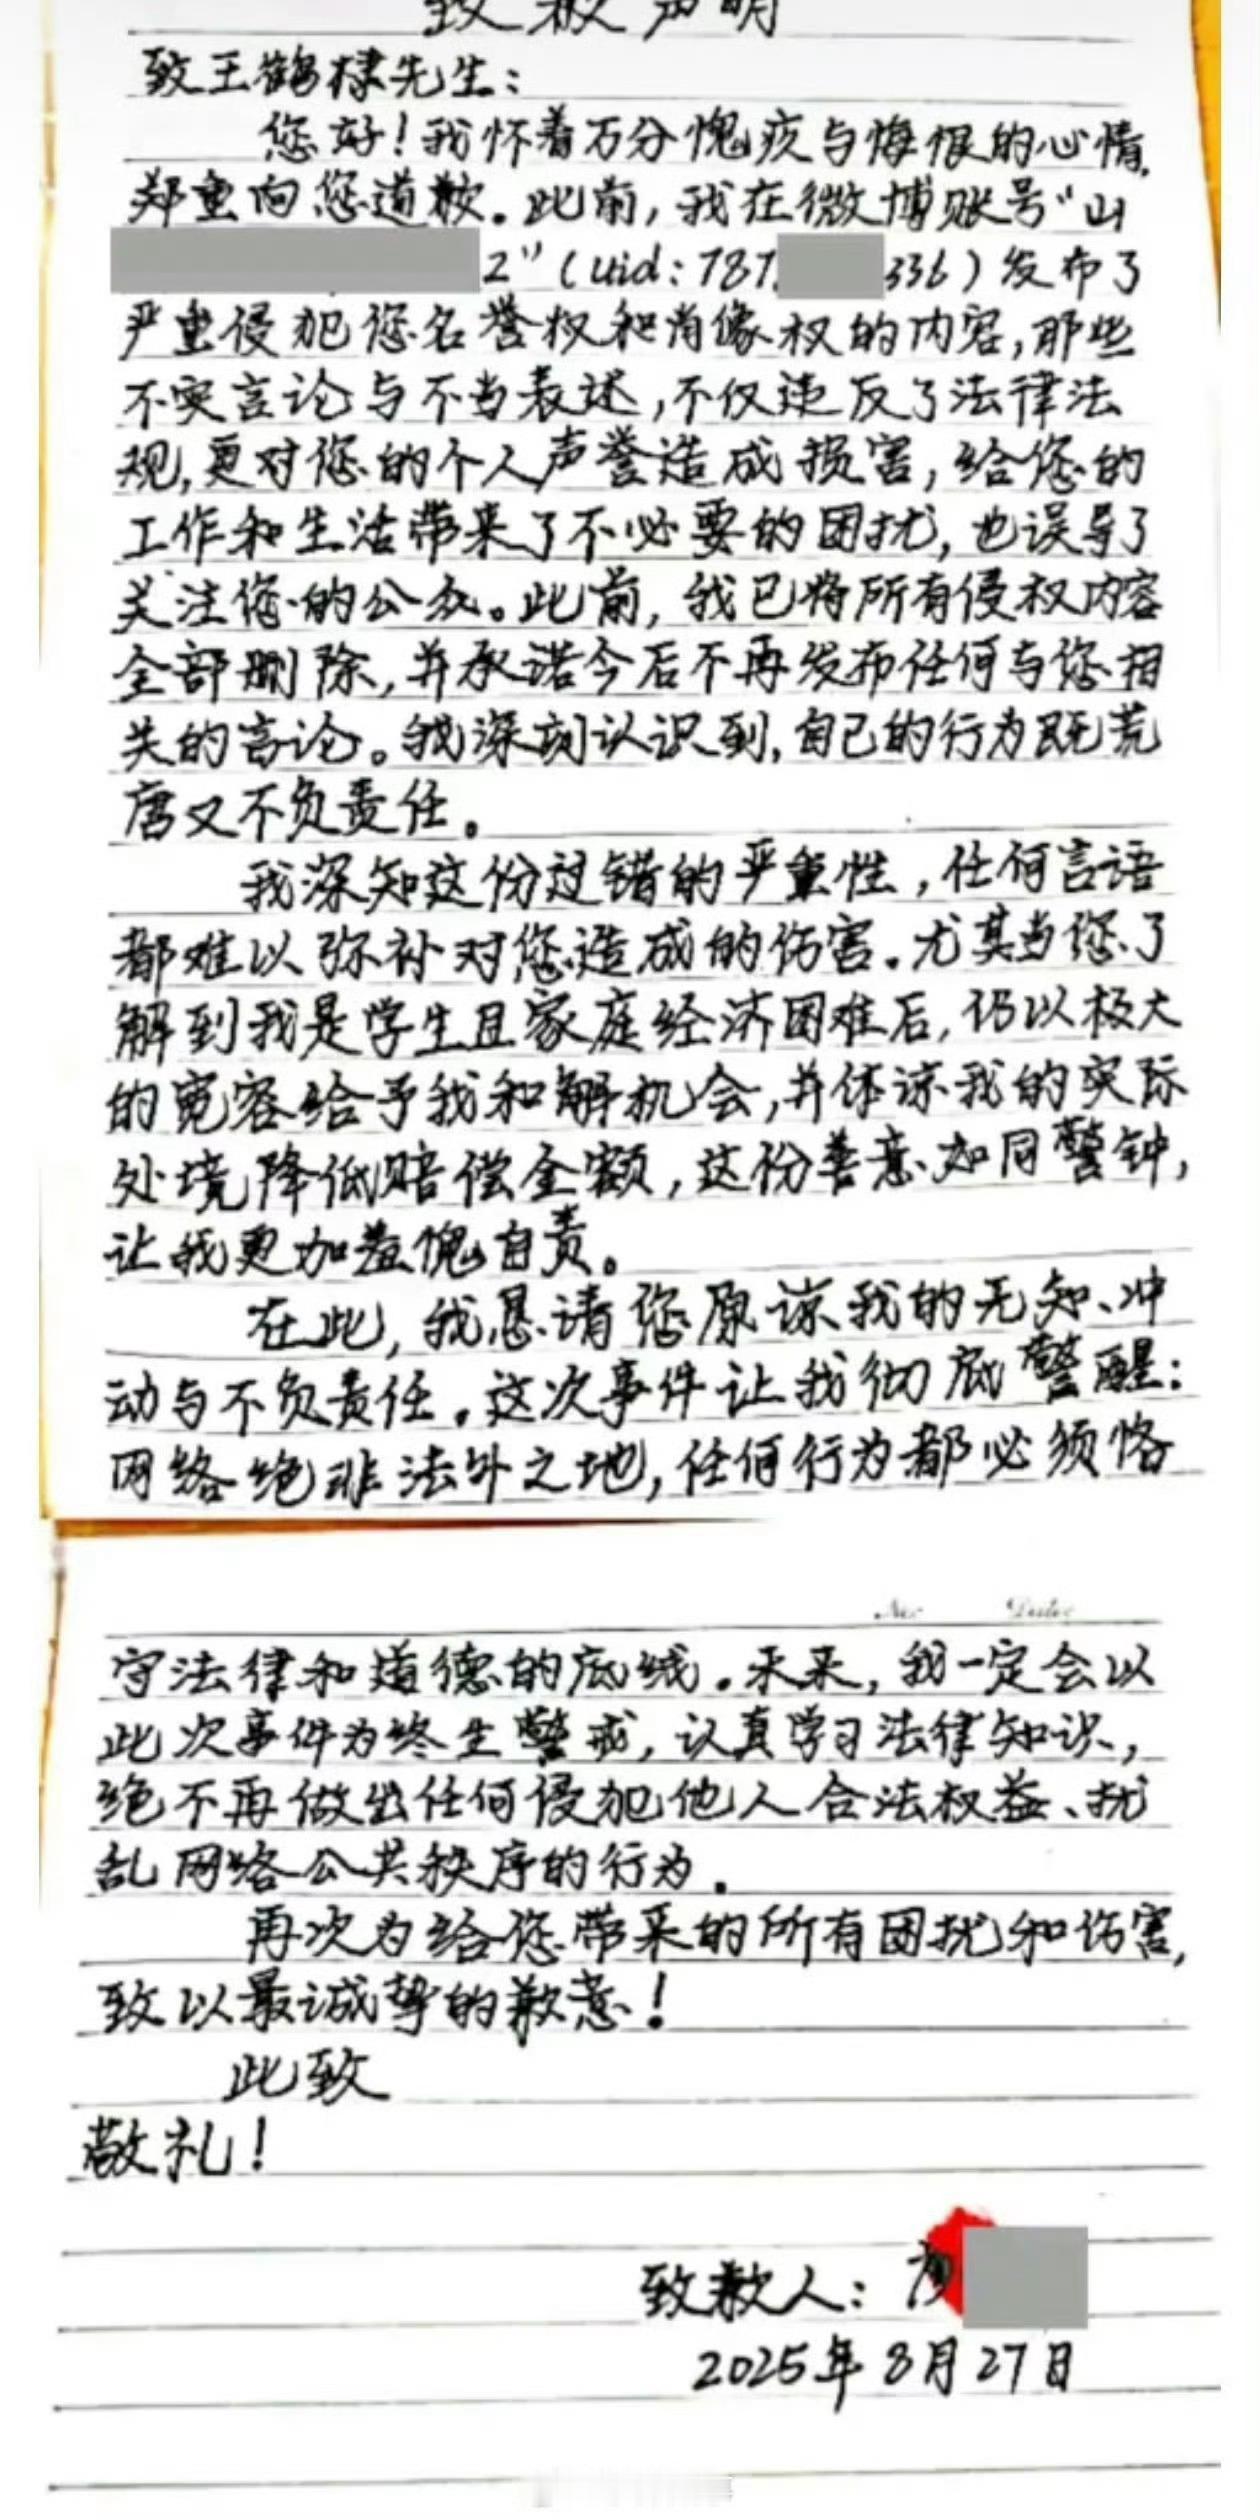 致歉声明
致王鹤棣先生：
您好！我怀着万分愧疚与悔恨的心情，
郑重向您道歉。此前，我在微博账号"山
2"（uid：787 336）发布了
严重侵犯您名誉权和肖像权的内容，那些
不实言论与不当表述，不仅违反了法律法
规，更对您的个人声誉造成损害，给您的
工作和生活带来了不必要的困扰，也误导了
关注您的公众。此前，我已将所有侵权内容
全部删除，并承诺今后不再发布任何与您相
关的言论。我深刻认识到，自己的行为既荒
唐又不负责任。
我深知这份过错的严重性，任何言语
都难以弥补对您造成的伤害。尤其当您了
解到我是学生且家庭经济困难后，仍以极大
的宽容给予我和解机会，并体谅我的实际
处境降低赔偿金额，这份善意如同警钟，
让我更加羞愧自责。
在此，我恳请您原谅我的无知、冲
动与不负责任。这次事件让我彻底警醒：
网络绝非法外之地，任何行为都必须恪
No Date
守法律和道德的底线。未来，我一定会以
此次事件为终生警戒，认真学习法律知识，
绝不再做出任何侵犯他人合法权益、扰
乱网络公共秩序的行为。
再次为给您带来的所有困扰和伤害，
致以最诚挚的歉意！
此致
敬礼！
致歉人：
2025年8月27日